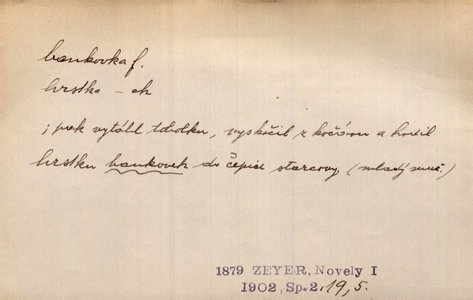 bankovka f.
hrstka – ek
; pak vytáhl tobolku, vyskočil z kočáru a hodil
hrstku bankovek do čepice starcovy (mladý muž.)
1879 ZEYER, Novely I
1902, Sp.2, 19, 5.